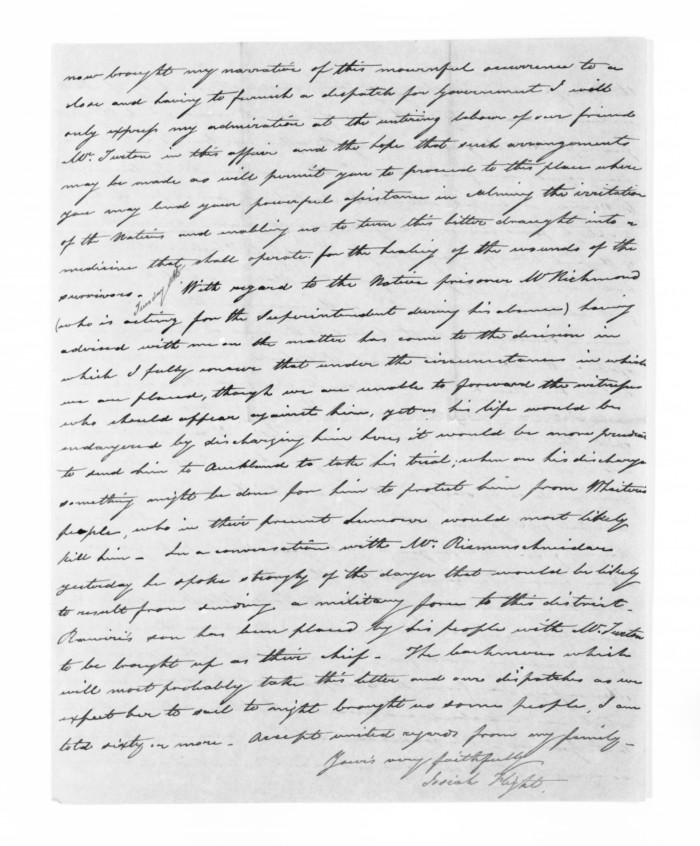 now brought my narrative of this mournful occurrence to a
close and having to furnish a dispatch for Government I will
only express my admiration at the untiring labour of our friend
Mr. Turton in this affair and the hope that such arrangements
may be made as will permit you to proceed to this place where
you may lend your powerful assistance in calming the irritation
of the Natives and enabling us to turn this bitter draught into a
medicine that shall operate for the healing of the wounds of the
survivors. With regard to the Native prisoner Mr Richmond
(who is acting for the Superintendent during his absence) having
advised with me on the matter has come to the decision in
which I fully concur that under the circumstances in which
we are placed, though we are unable to forward the witnesses
who should appear against him, yet as his life would be
endangered by discharging him here, it would be more prudent
to send him to Auckland to take his trial; when on his discharge
something might be done for him to protect him from
people, who in their present humour would most likely
kill him - In a conversation with Mr. Riemenschneider
yesterday he spoke strongly of the danger that would be likely
to result from sending a military force to this district -
Rawiri's son has been placed by his people with Mr. Turton
to be brought up as their chief - The which
will most probably take this letter and our dispatches as we
expect her to sail to night brought us some people, I am
told sixty or more - Accept united regards from my family -
Yours very faithfully
Josiah Flight.